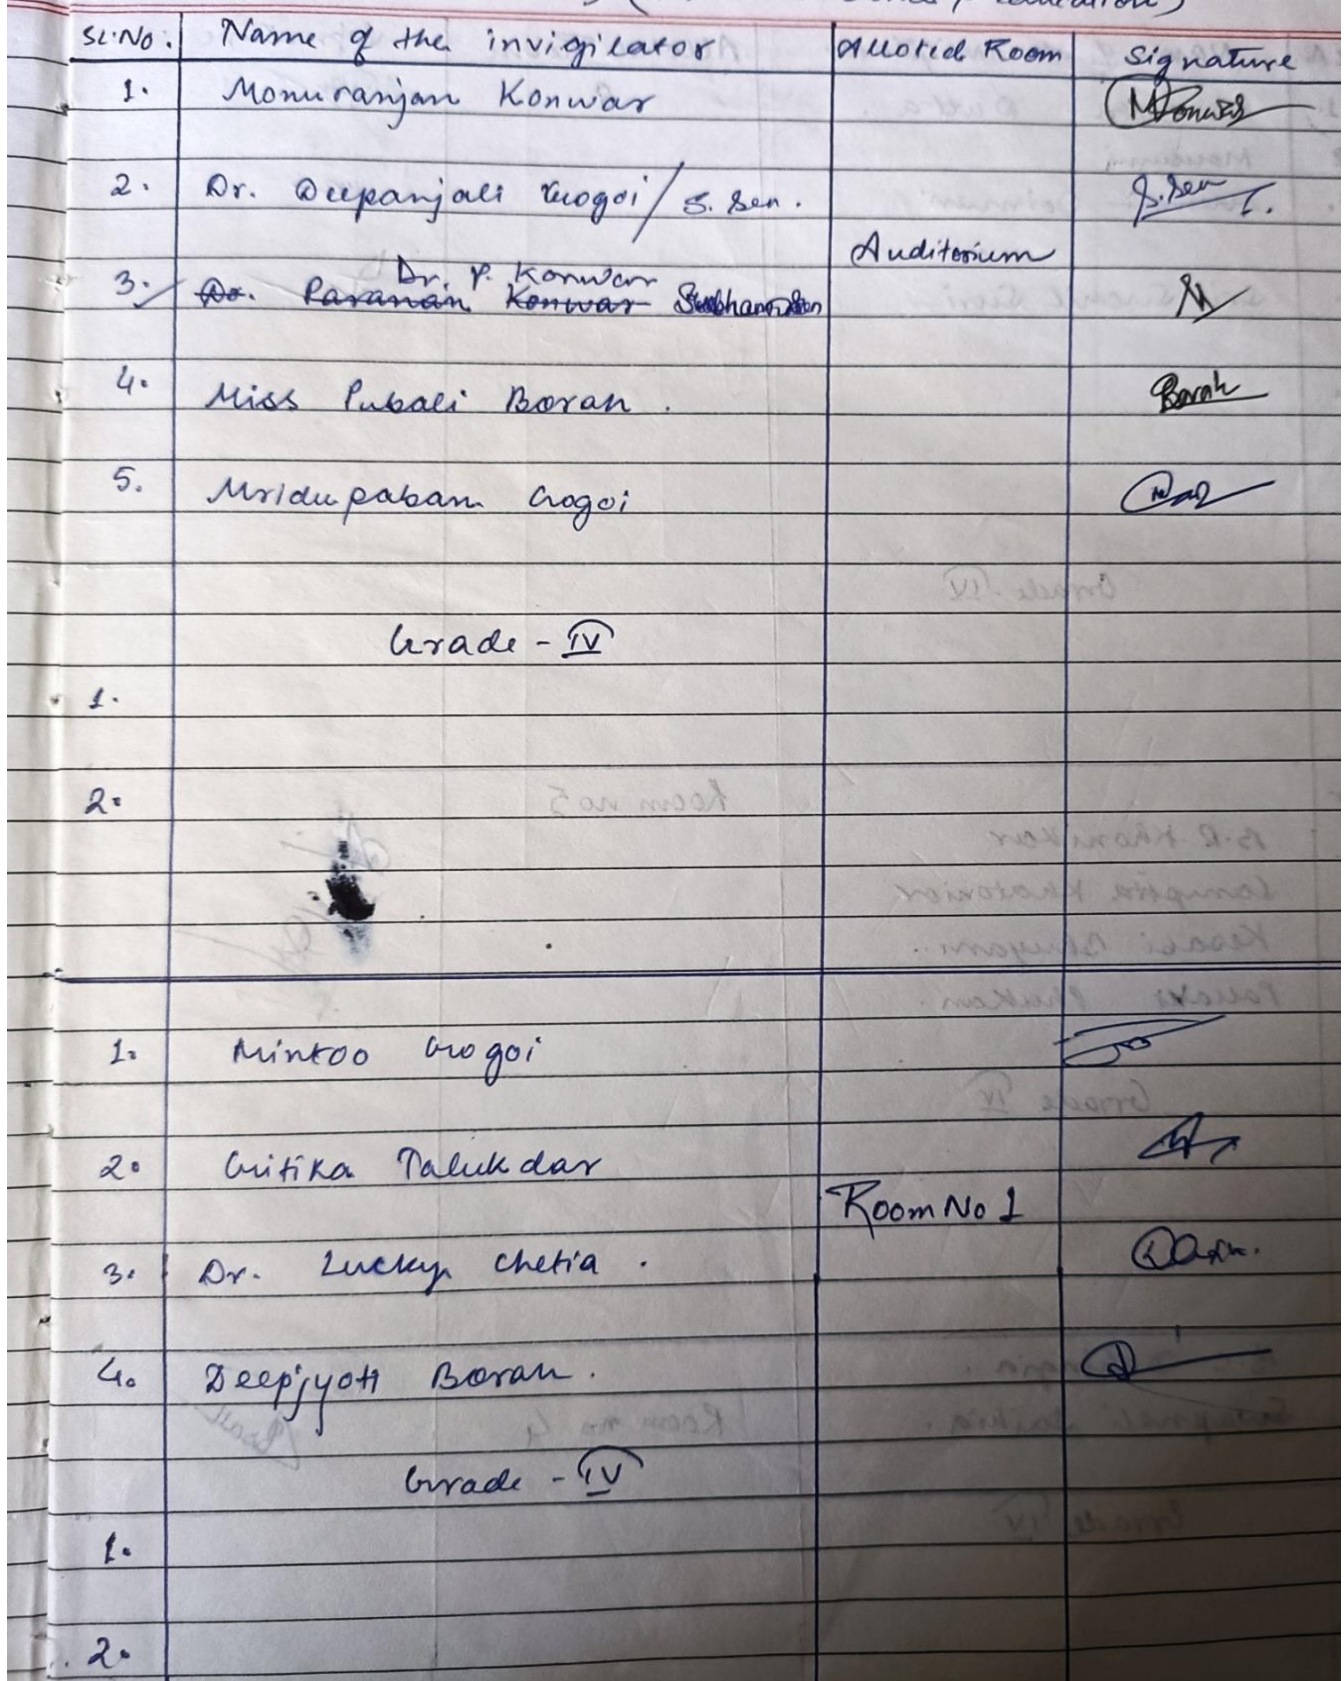 Sl.No. Name of the invigilator Alloted Room Signature
1. Monuranjan Konwar
2. Dr. Deepanjali Gogoi / S. Sen. S. Sen
Auditorium
Dr. P. Konwar
3. Dr. Paranan Konwar
4. Miss Pubali Borah. Borah
5. Mridupaban Gogoi
Grade - IV
1.
2.
1. Mintoo Gogoi
2. Gitika Talukdar
Room No 1
3. Dr. Lucky Chetia.
4. Deepjyoti Borah.
Grade - IV
1.
2.